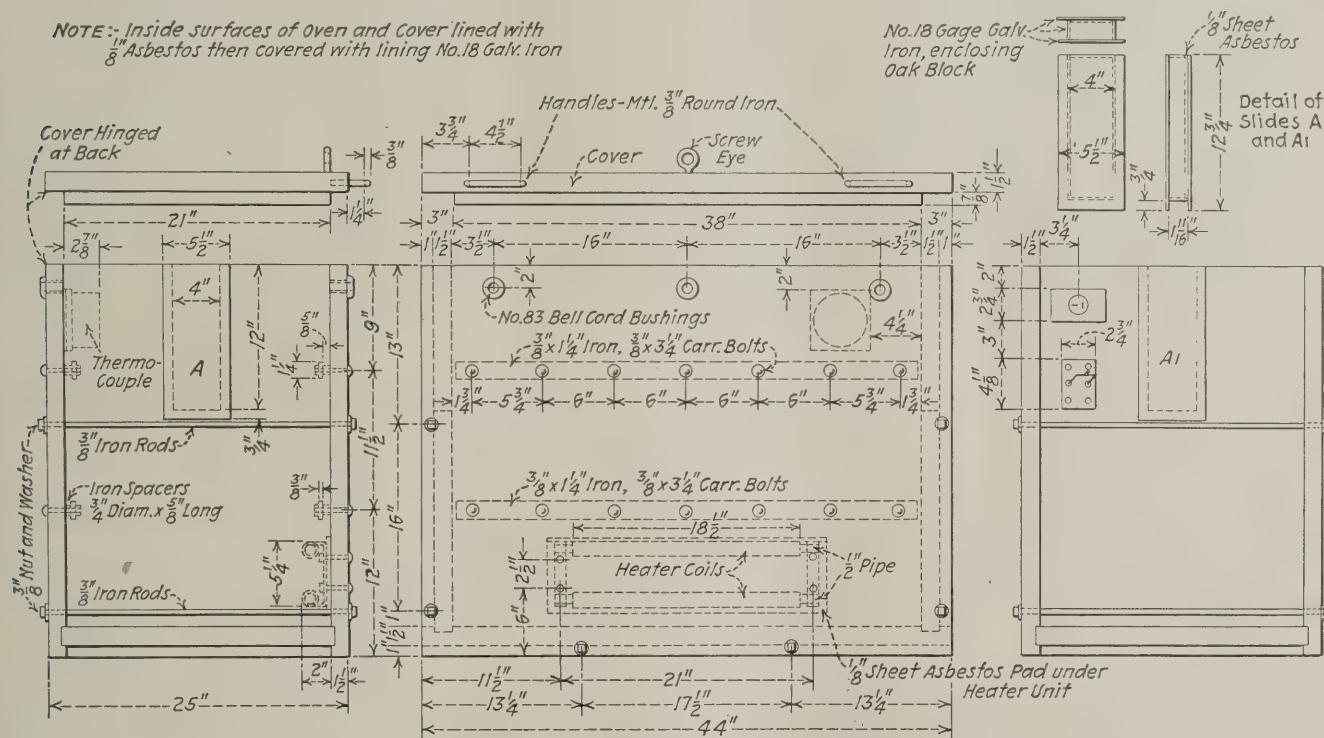 NOTE:- Inside surfaces of Oven and Cover lined with
1/8" Asbestos then covered with lining No.18 Galv. Iron
No.18 Gage Galv.
Iron, enclosing
Oak Block
1/8" Sheet
Asbestos
4"
5 1/2"
12 3/4"
3/4"
1 11/16"
Detail of
Slides A
and A1
Cover Hinged
at Back
3/8"
21"
1 1/4"
Handles-Mtl. 3/8" Round Iron
3 3/4"
4 1/2"
Cover
Screw
Eye
1 1/2"
7/8"
3"
38"
3"
2 7/8"
5 1/2"
4"
12"
Thermo-
Couple
A
5/8"
1 1/4"
9"
13"
3/8" Iron Rods
3/4"
11 1/2"
3/8" Nut and Washer
Iron Spacers
3/4" Diam. x 5/8" Long
3/8"
16"
5 1/4"
12"
3/8" Iron Rods
1"
1 1/2"
1"
2"
1 1/2"
25"
1"
1 1/2"
3 1/2"
16"
16"
3 1/2"
1 1/2"
1"
2"
2"
No.83 Bell Cord Bushings
4 1/4"
3/8" x 1 1/4" Iron, 3/8" x 3 1/4" Carr. Bolts
1 3/4"
5 3/4"
6"
6"
6"
6"
5 3/4"
1 3/4"
3/8" x 1 1/4" Iron, 3/8" x 3 1/4" Carr. Bolts
18 1/2"
2 1/2"
Heater Coils
1/2" Pipe
6"
1/8" Sheet Asbestos Pad under
Heater Unit
11 1/2"
21"
13 1/4"
17 1/2"
13 1/4"
44"
1 1/2"
3 1/4"
2"
2 3/4"
3"
2 3/4"
4 1/8"
A1